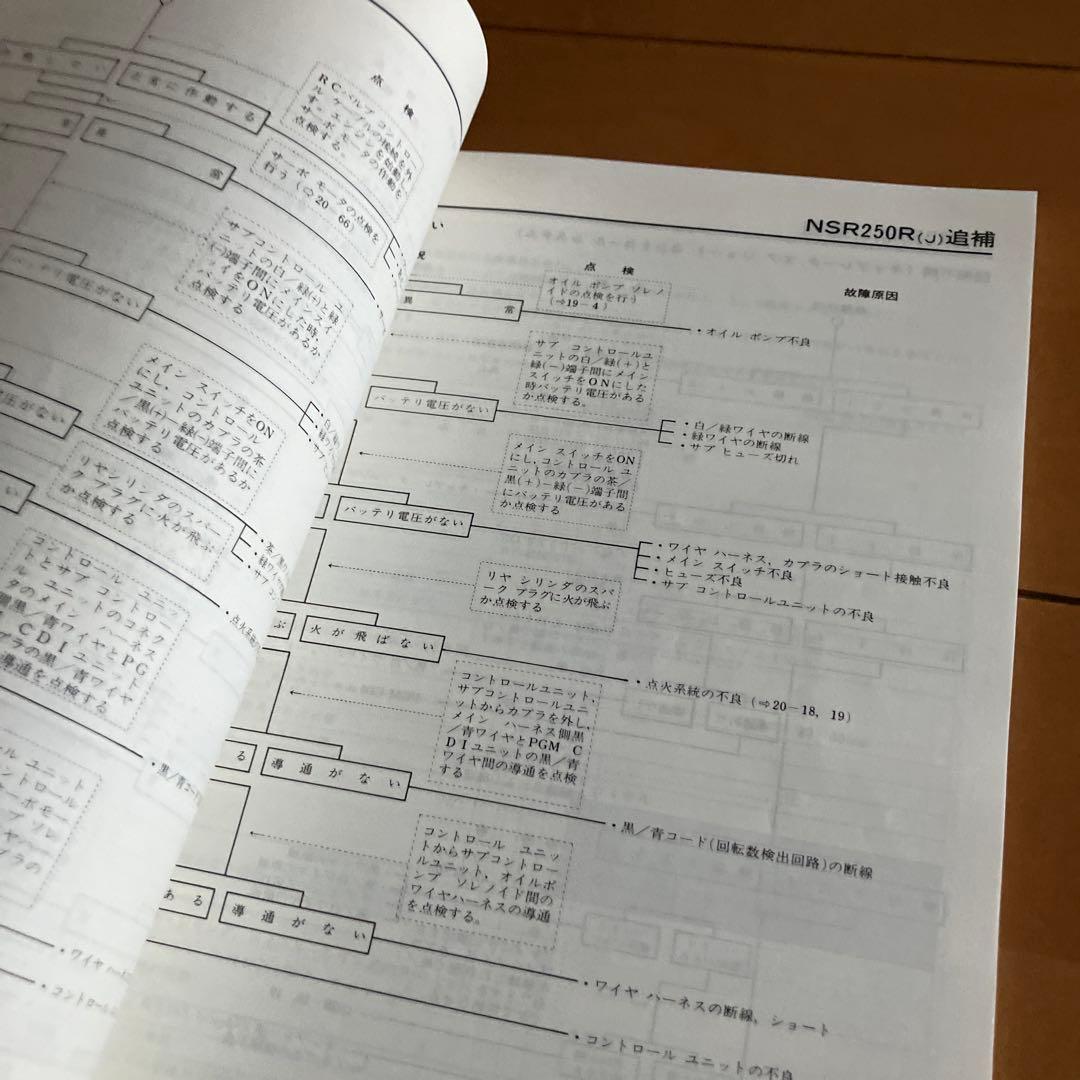 点 検
RCバルブ コントロー
ル ケーブルの接続を外
す。エンジンを始動し
サーボモータの作動を
点検する。
正常に作動する
サーボ モータの点検を
行う（⇨20－66）
常
サブコントロール ユ
ニットの白／緑(+)と緑
(−)端子間にメインスイ
ッチをONにした時、
バッテリ電圧があるか
点検する
バッテリ電圧がない
メイン スイッチをON
にし、コントロール
ユニットのカプラの茶
／黒(+)−緑(−)端子間に
バッテリ電圧があるか
点検する
電圧がない
リヤシリンダのスパー
ク プラグに火が飛ぶ
か点検する
コントロール ユニッ
トとサブ コントロー
ル ユニットのコネク
CDIユニット
導通を点検する
NSR250R(J)追補
い
況
点 検
故障原因
オイル ポンプ ソレノ
イドの点検を行う
（⇨19－4）
異 常
・オイル ポンプ不良
サブ コントロールユ
ニットの白／緑(+)と
緑(−)端子間にメイン
スイッチをONにした
時バッテリ電圧がある
か点検する。
バッテリ電圧がない
・白／緑ワイヤの断線
・緑ワイヤの断線
・サブ ヒューズ切れ
メイン スイッチをON
にし、コントロール ユ
ニットのカプラの茶／
黒(+)−緑(−)端子間
にバッテリ電圧がある
か点検する
バッテリ電圧がない
・ワイヤ ハーネス、カプラのショート接触不良
・メイン スイッチ不良
・ヒューズ不良
・サブ コントロールユニットの不良
リヤ シリンダのスパ
ーク プラグに火が飛ぶ
か点検する
ぶ
火が飛ばない
・点火系統の不良（⇨20－18, 19）
コントロールユニット、
サブコントロールユニ
ットからカプラを外し、
メイン ハーネス側黒
／青ワイヤとPGM C
DIユニットの黒／青
ワイヤ間の導通を点検
する
る
導通がない
・黒／青コード(回転数検出回路)の断線
コントロール ユニッ
トからサブコントロー
ルユニット、オイルポ
ンプ ソレノイド間の
ワイヤハーネスの導通
を点検する。
ある
導通がない
・ワイヤ ハーネスの断線、ショート
・コントロール ユニットの不良